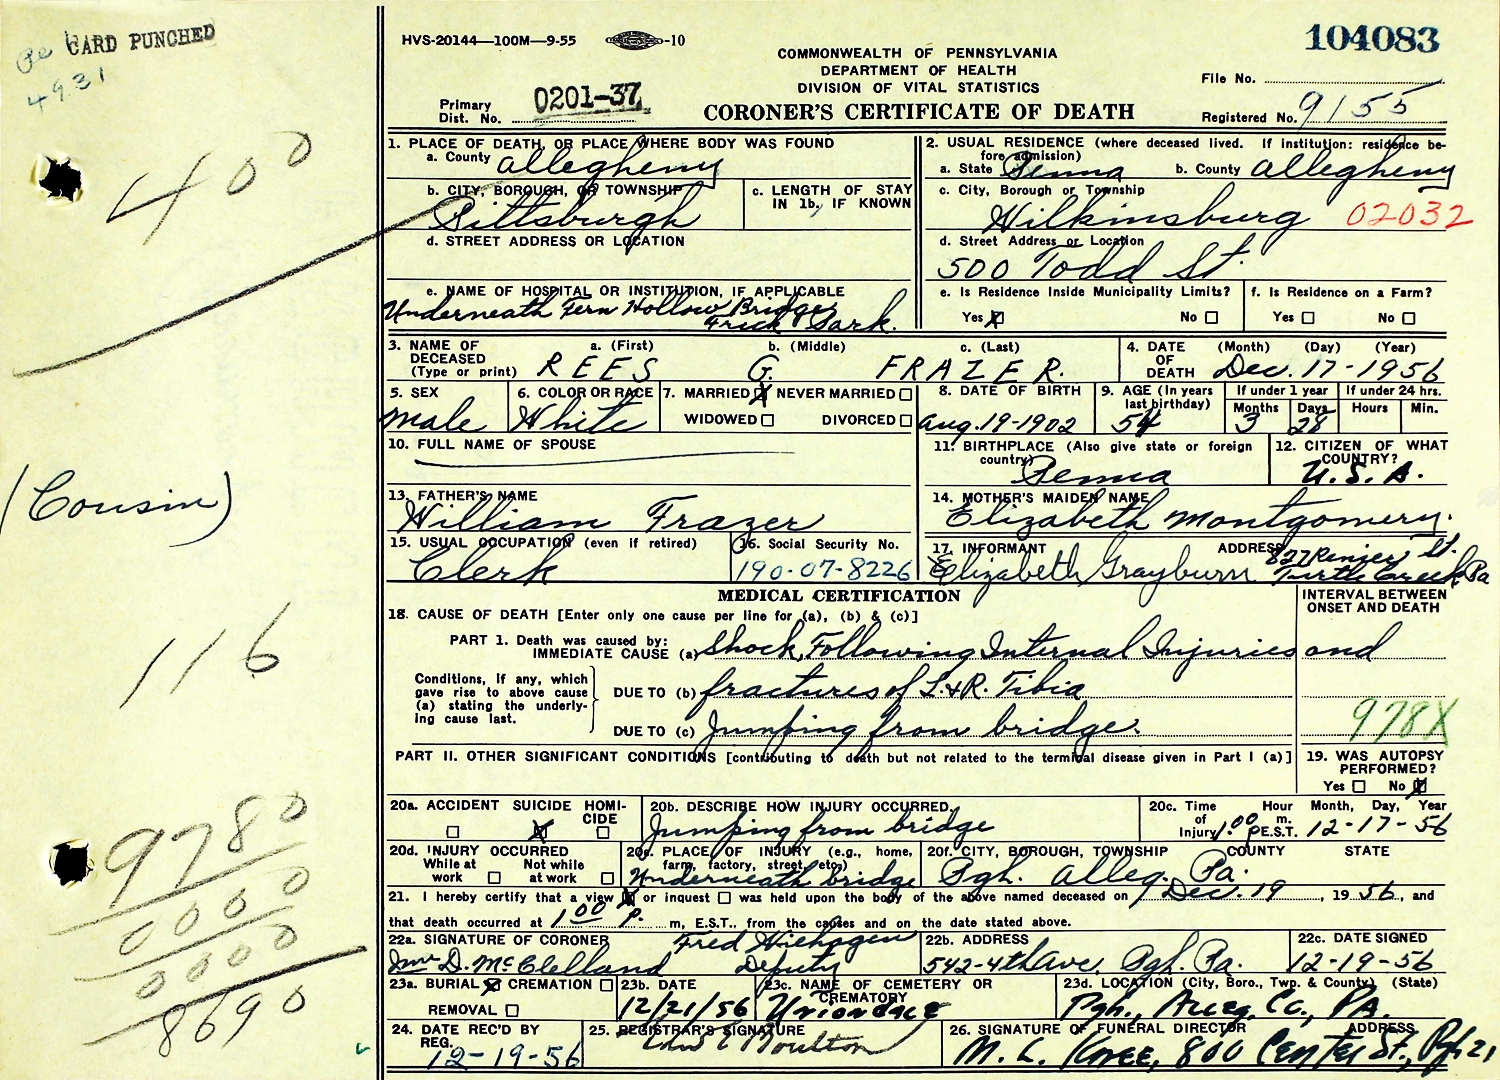 CARD PUNCHED
4931
HVS-20144—100M—9-55 -10
104083
COMMONWEALTH OF PENNSYLVANIA
DEPARTMENT OF HEALTH
DIVISION OF VITAL STATISTICS
CORONER'S CERTIFICATE OF DEATH
File No.
Primary Dist. No. 0201-37
Registered No. 9155
1. PLACE OF DEATH, OR PLACE WHERE BODY WAS FOUND
a. County Allegheny
b. CITY, BOROUGH, OR TOWNSHIP Pittsburgh
c. LENGTH OF STAY IN 1b, IF KNOWN
d. STREET ADDRESS OR LOCATION
e. NAME OF HOSPITAL OR INSTITUTION, IF APPLICABLE
Underneath Fern Hollow Bridge,
Frick Park.
2. USUAL RESIDENCE (where deceased lived. If institution: residence before admission)
a. State Penna b. County Allegheny
c. City, Borough or Township
Wilkinsburg 02032
d. Street Address or Location
500 Todd St.
e. Is Residence Inside Municipality Limits?
Yes X No
f. Is Residence on a Farm?
Yes No
3. NAME OF DECEASED (Type or print) a. (First) b. (Middle) c. (Last)
REES G. FRAZER.
4. DATE OF DEATH (Month) (Day) (Year)
Dec. 17-1956
5. SEX male
6. COLOR OR RACE White
7. MARRIED X NEVER MARRIED
WIDOWED DIVORCED
8. DATE OF BIRTH Aug. 19-1902
9. AGE (In years last birthday) 54
If under 1 year Months 3 Days 28
If under 24 hrs. Hours Min.
10. FULL NAME OF SPOUSE
11. BIRTHPLACE (Also give state or foreign country) Penna
12. CITIZEN OF WHAT COUNTRY? U.S.A.
13. FATHER'S NAME William Frazer
14. MOTHER'S MAIDEN NAME Elizabeth Montgomery.
15. USUAL OCCUPATION (even if retired) Clerk
16. Social Security No. 190-07-8226
17. INFORMANT ADDRESS
Elizabeth Grayburn 827 St. Turtle Creek, Pa
MEDICAL CERTIFICATION
INTERVAL BETWEEN ONSET AND DEATH
18. CAUSE OF DEATH [Enter only one cause per line for (a), (b) & (c)]
PART 1. Death was caused by:
IMMEDIATE CAUSE (a) Shock, Following Internal Injuries and
Conditions, if any, which gave rise to above cause (a) stating the underlying cause last.
DUE TO (b) fractures of L. & R. Tibia
DUE TO (c) Jumping from bridge.
978X
PART II. OTHER SIGNIFICANT CONDITIONS [contributing to death but not related to the terminal disease given in Part I (a)]
19. WAS AUTOPSY PERFORMED?
Yes No X
20a. ACCIDENT SUICIDE HOMICIDE
X
20b. DESCRIBE HOW INJURY OCCURRED.
Jumping from bridge
20c. Time of Injury Hour m. Month, Day, Year
1:00 P E.S.T. 12-17-56
20d. INJURY OCCURRED
While at work Not while at work
20e. PLACE OF INJURY (e.g., home, farm, factory, street, etc.)
Underneath bridge
20f. CITY, BOROUGH, TOWNSHIP COUNTY STATE
Pgh. Alleg. Pa.
21. I hereby certify that a view X or inquest was held upon the body of the above named deceased on Dec. 19, 1956, and
that death occurred at 1 00 P. m, E.S.T., from the causes and on the date stated above.
22a. SIGNATURE OF CORONER
Wm D. McClelland Fred Niehagen Deputy
22b. ADDRESS
542-4th Ave, Pgh. Pa.
22c. DATE SIGNED
12-19-56
23a. BURIAL X CREMATION
REMOVAL
23b. DATE 12/21/56
23c. NAME OF CEMETERY OR CREMATORY Uniondale
23d. LOCATION (City, Boro., Twp. & County) (State)
Pgh., Alleg. Co., PA.
24. DATE REC'D BY REG. 12-19-56
25. REGISTRAR'S SIGNATURE
Moulton
26. SIGNATURE OF FUNERAL DIRECTOR ADDRESS
M. L. Knee, 800 Center St., Pgh 21
400
(Cousin)
116
9780
0000
0000
8690